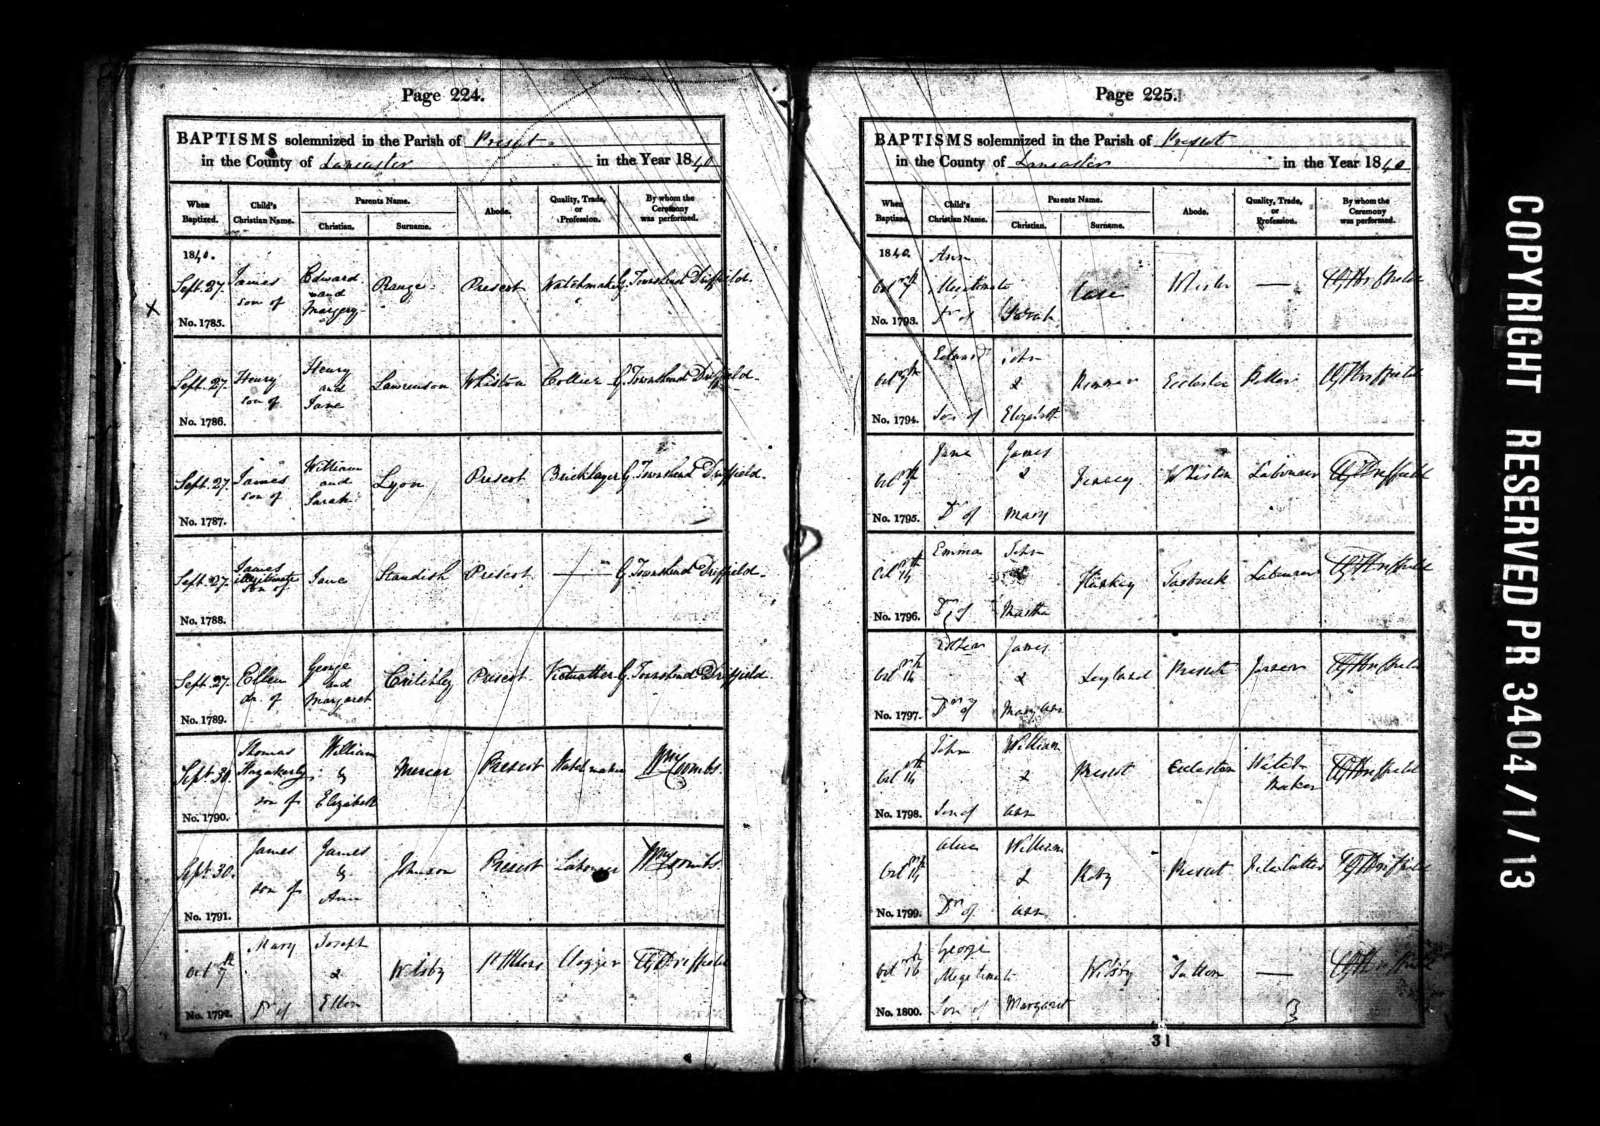 Page 224.
BAPTISMS solemnized in the Parish of Prescot
in the County of Lancaster in the Year 1840
When Baptized. Child's Christian Name. Parents Name. Christian. Surname. Abode. Quality, Trade, or Profession. By whom the Ceremony was performed.
1840.
Sept. 27. James son of Edward and Margery Range Prescot Watchmaker G. Townshend Driffield.
No. 1785.
Sept. 27. Henry son of Henry and Jane Lawrenson Whiston Collier G. Townshend Driffield.
No. 1786.
Sept. 27. James son of William and Sarah Lyon Prescot Bricklayer G. Townshend Driffield.
No. 1787.
Sept. 27. James illegitimate son of Jane Standish Prescot — G. Townshend Driffield.
No. 1788.
Sept. 27. Ellen dr. of George and Margaret Critchley Prescot Victualler G. Townshend Driffield.
No. 1789.
Sept. 30. Thomas son of William & Elizabeth Mercer Prescot Watch maker Wm Coombs.
No. 1790.
Sept. 30. James son of James & Ann Johnson Prescot Labourer Wm Coombs.
No. 1791.
Oct 7th Mary Dr of Joseph & Ellen Welsby Clogger GTDriffield
No. 1792.
Page 225.
BAPTISMS solemnized in the Parish of Prescot
in the County of Lancaster in the Year 1840
When Baptized. Child's Christian Name. Parents Name. Christian. Surname. Abode. Quality, Trade, or Profession. By whom the Ceremony was performed.
1840.
Oct 7th Ann Illegitimate Dr of Sarah — GTDriffield
No. 1793.
Oct 9th Edward Son of John & Elizabeth Eccleston GTDriffield
No. 1794.
Oct 9th Jane Dr of James & Mary Whiston Labourer GTDriffield
No. 1795.
Oct 14th Emma Dr of John & Martha Tarbock Labourer GTDriffield
No. 1796.
Oct 14th Dr of James & Mary Ann Leyland Prescot GTDriffield
No. 1797.
Oct 14th John Son of William & Ann Prescot Eccleston Watch Maker GTDriffield
No. 1798.
Oct 14th Alice Dr of William & Ann Roby Prescot File Cutter GTDriffield
No. 1799.
Oct 16th George Illegitimate Son of Margaret Welsby Sutton — GTDriffield
No. 1800.
31
COPYRIGHT RESERVED PR 3404/1/13